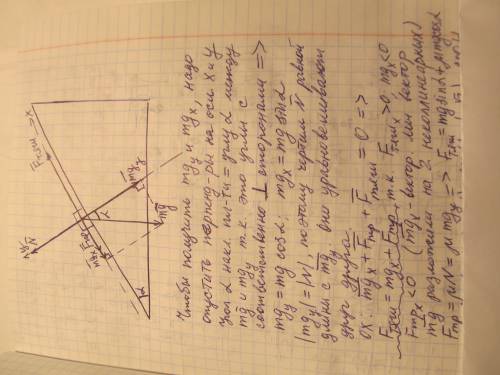 Чтобы получить mgy и mgx, надо
опустить перпенд-ры на оси X и Y
угол α накл. пл-ти = углу α между
mg и mgy т.к. это углы с
соответственно ⊥ сторонами =>
mgy = mg cosα; mgx = mg sinα
|mgy| = |N|, поэтому чертим N равной
длины с mgy, они уравновешивают
друг друга.
OX: mgx + Fтр + Fтяги = 0 =>
Fтяги = mgx + Fтр, т.к. Fтяги x >0, mgx<0
Fтр x <0 (mgx - вектор, мы вектор
mg разложили на 2 неколлинеарных)
Fтр = μN = μ mgy => Fтяги = mg sinα + μ mg cosα
y
N
Fтяги
X
Fтр
mgx
α
mgy
mg
α